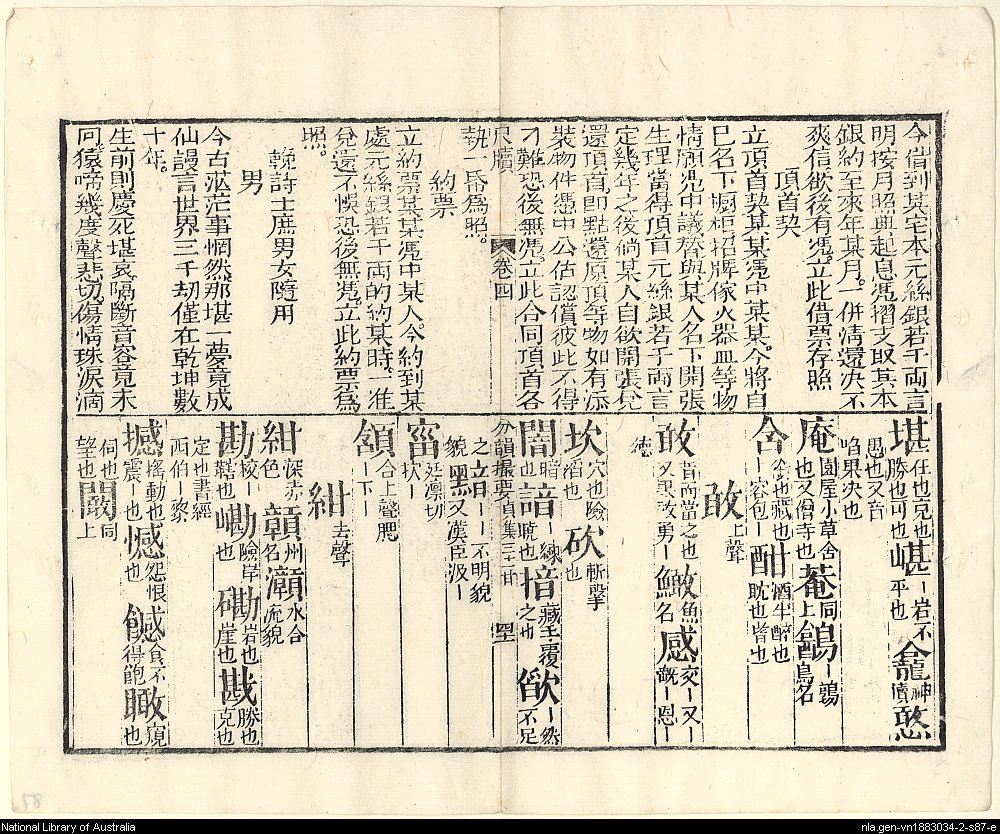 今借到某宅本元絲銀若干両言
明按月照典起息憑摺支取其本
銀約至來年某月一併清還决不
爽信欲後有憑立此借票存照
頂首契
立頂首契某某憑中某某今將自
巳名下櫥柜招牌傢火器皿等物
情願凂中議替與某人名下開張
生理當得頂首元絲銀若干両言
定幾年之後倘某人自欲開張凭
還頂首即點還原頂等物如有添
裝物件憑中公估認償彼此不得
刁難恐後無憑立此合同頂首各
尺牘 卷四
執一㕂爲照
約票
立約票某某憑中某人今約到某
處元絲銀若干両的約某時一准
兌還不悞恐後無憑立此約票爲
照
輓詩士庶男女隨用
男
今古茫茫事惘然那堪一夢竟成
仙謾言世界三千劫僅在乾坤數
十年
生前則慶死堪哀隔斷音容竟未
囘猿啼幾度聲悲切傷情珠淚滴
堪任也克也勝也可也 嵁ー岩不平也 龕神牘 憨
愚也又音啗果决也
庵園屋小草舍也又僧寺也 菴同上 鵪ー鶉鳥名
含ー容包ー 酣酒半醉也
敢上聲
敢 勇ー 鰔魚名 感交ー又ー慨ー恩ー
德
坎穴也險也 砍斬擊也
闇 諳ー練曉也 揞藏手覆之也 欿ー然不足
分韻撮要貞集三十二甘
之 ーー不明貌 黯又漢臣汲ー
坎ー
頷合上聲肥ー下
紺去聲
紺深赤色 贑州名 灨水合流貌
勘校ー ー險岸也 磡崖也 戡勝也克也
定也書經西伯ー黎
撼搖動也震ー也 憾怨恨也 瞰窺也
伺也望也 闞同上
National Library of Australia
nla.gen-vn1883034-2-s87-e